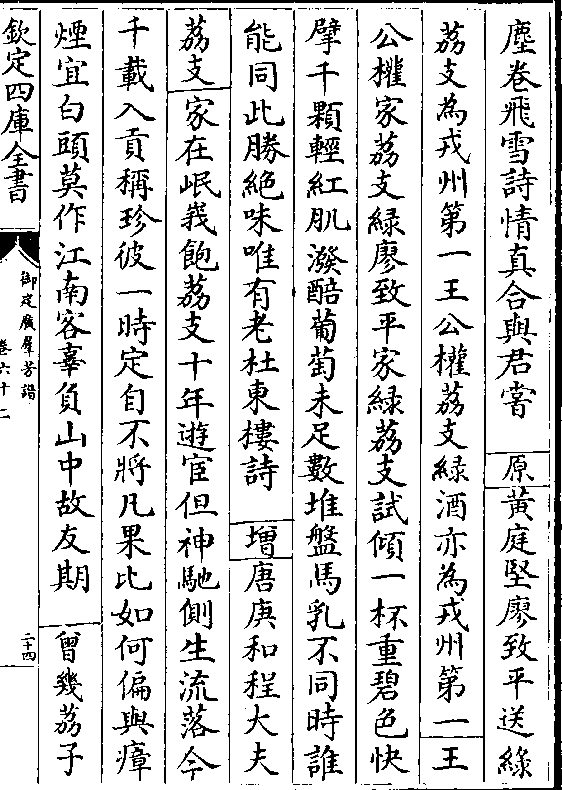 塵卷飛雪詩情真合與君嘗 原 黃庭堅廖致平送綠
荔支為戎州第一王公權荔支綠酒亦為戎州第一 王
公權家荔支綠廖致平家綠荔支試傾一杯重碧色快
擘千顆輕紅肌潑醅葡萄未足數堆盤馬乳不同時誰
能同此勝絶味唯有老杜東樓詩 增 唐庚和程大夫
荔支 家在岷峩飽荔支十年遊宦但神馳側生流落今
千載入貢稱珍彼一時定自不將凡果比如何偏與瘴
煙宜白頭莫作江南客辜負山中故友期 曾幾荔子
欽定四庫全書
御定廣羣芳譜
卷六十二
二十四